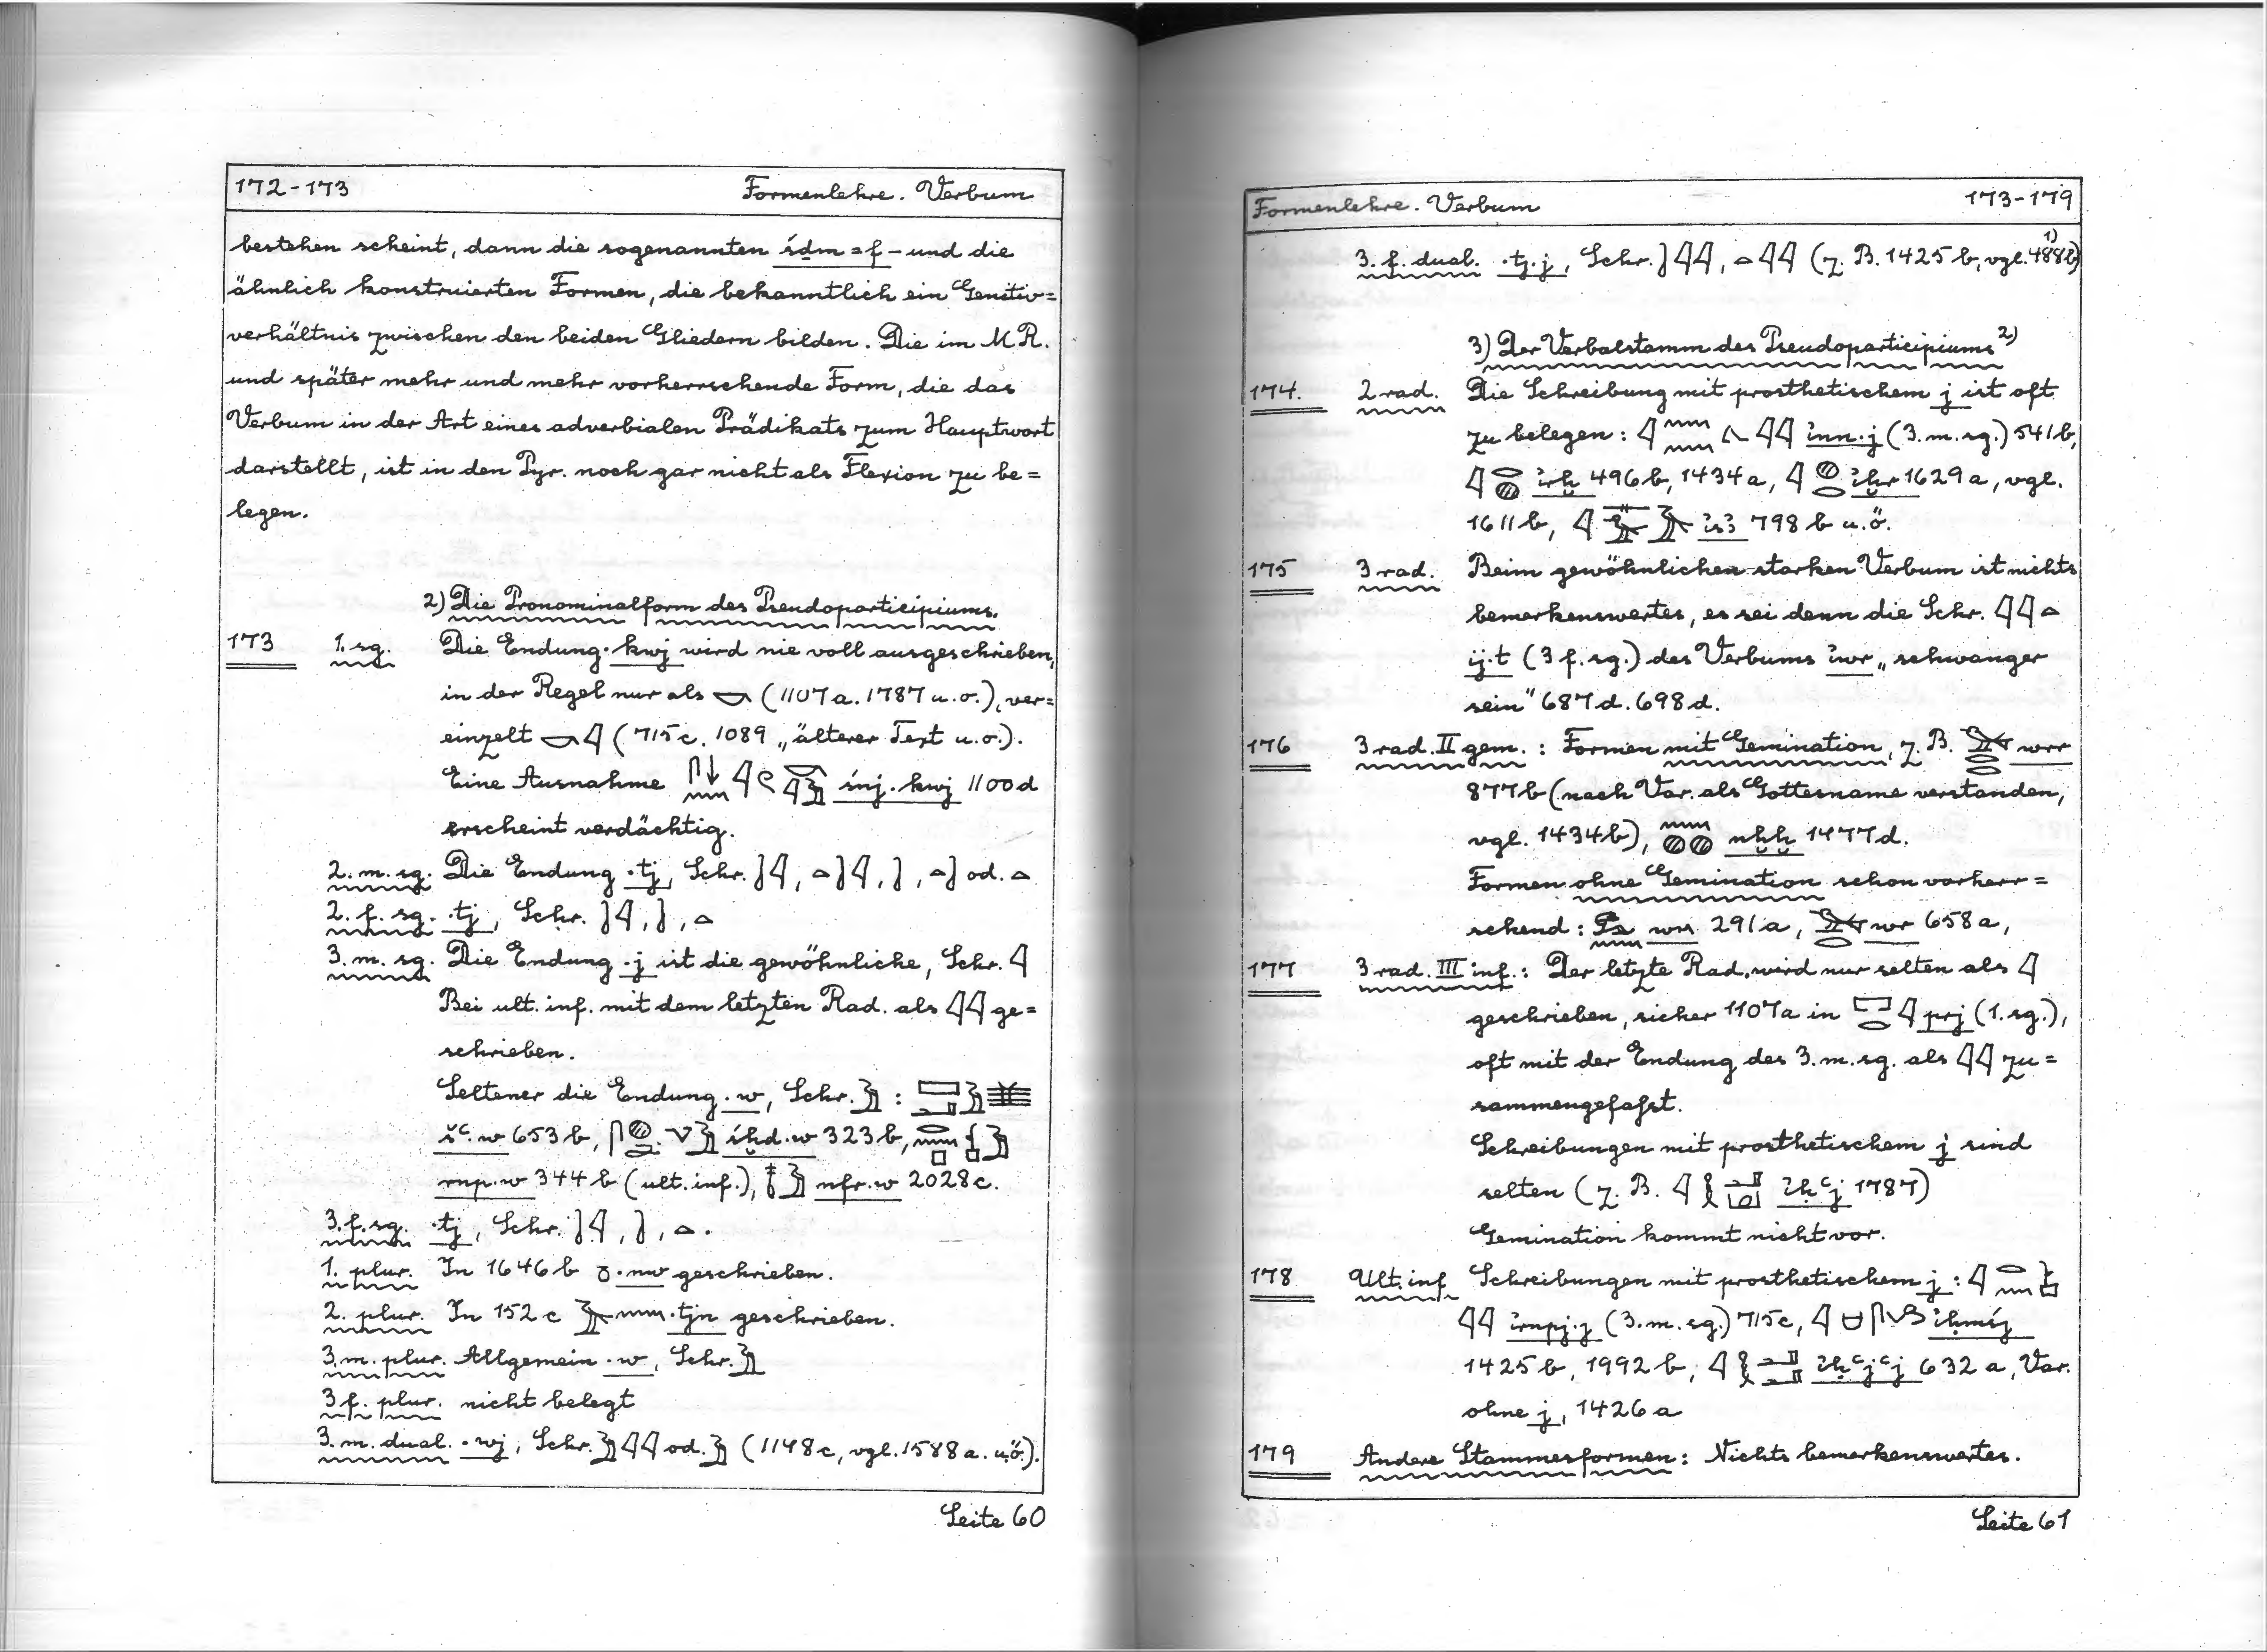 172-173 Formenlehre. Verbum
bestehen scheint, dann die sogenannten śḏm=f - und die
ähnlich konstruierten Formen, die bekanntlich ein Genitiv=
verhältnis zwischen den beiden Gliedern bilden. Die im M.R.
und später mehr und mehr vorherrschende Form, die das
Verbum in der Art eines adverbialen Prädikats zum Hauptwort
darstellt, ist in den Pyr. noch gar nicht als Flexion zu be=
legen.
2) Die Pronominalform des Pseudoparticipiums.
173 1. sg. Die Endung ·kwj wird nie voll ausgeschrieben,
in der Regel nur als 𓎡 (1107a. 1787 u.o.), ver=
einzelt 𓎡𓇋 (715c. 1089 „älterer Text u.o.).
Eine Ausnahme śnj·kwj 1100d
erscheint verdächtig.
2. m. sg. Die Endung ·tj, Schr. 𓍘𓇋, 𓏏𓍘𓇋, 𓍘, 𓏏𓍘 od. 𓏏
2. f. sg. ·tj, Schr. 𓍘𓇋, 𓍘, 𓏏
3. m. sg. Die Endung ·j ist die gewöhnliche, Schr. 𓇋
Bei ult. inf. mit dem letzten Rad. als 𓇋𓇋 ge=
schrieben.
Seltener die Endung ·w, Schr. 𓅱 :
šꜥ·w 653b, śḥḏ·w 323b,
rnp·w 344b (ult. inf.), 𓄤𓅱 nfr·w 2028c.
3. f. sg. ·tj, Schr. 𓍘𓇋, 𓍘, 𓏏.
1. plur. In 1646b 𓏌·nw geschrieben.
2. plur. In 152c ·tjn geschrieben.
3. m. plur. Allgemein ·w, Schr. 𓅱
3 f. plur. nicht belegt
3. m. dual. ·wj, Schr. 𓅱𓇋𓇋 od. 𓅱 (1148c, vgl. 1588a. u.ö.).
Seite 60
Formenlehre. Verbum 173-179
3. f. dual. ·tj·j, Schr. 𓍘𓇋𓇋, 𓏏𓇋𓇋 (z. B. 1425b, vgl. 488b) 1)
3) Der Verbalstamm des Pseudoparticipiums 2)
174. 2 rad. Die Schreibung mit prosthetischem j ist oft
zu belegen: 𓇋𓈖𓈖𓂻𓇋𓇋 ꞽnn·j (3. m. sg.) 541b,
𓇋𓂋𓐍 ꞽrḫ 496b, 1434a, 𓇋𓐍𓂋 ꞽḫr 1629a, vgl.
1611b, ꞽsꜣ 798b u.ö.
175 3 rad. Beim gewöhnlichen starken Verbum ist nichts
bemerkenswertes, es sei denn die Schr. 𓇋𓇋𓏏
ꞽj·t (3 f. sg.) des Verbums ꞽwr „schwanger
sein" 687d. 698d.
176 3 rad. II gem. : Formen mit Gemination, z. B. 𓅨𓂋𓂋 wrr
877b (nach Var. als Gottesname verstanden,
vgl. 1434b), 𓈖𓐍𓐍 nḫḫ 1477d.
Formen ohne Gemination schon vorherr=
schend: wn 291a, 𓅨𓂋 wr 658a,
177 3 rad. III inf. : Der letzte Rad. wird nur selten als 𓇋
geschrieben, sicher 1107a in 𓉐𓂋𓇋 prj (1. sg.),
oft mit der Endung des 3. m. sg. als 𓇋𓇋 zu=
sammengefaßt.
Schreibungen mit prosthetischem j sind
selten (z. B. ꞽḥꜥj 1787)
Gemination kommt nicht vor.
178 Ult. inf Schreibungen mit prosthetischem j :
𓇋𓇋 ꞽrnpj·j (3. m. sg.) 715c, ꞽḥmśj
1425b, 1992b, ꞽḥꜥjꜥj 632a, Var.
ohne j, 1426a
179 Andere Stammesformen: Nichts bemerkenswertes.
Seite 61